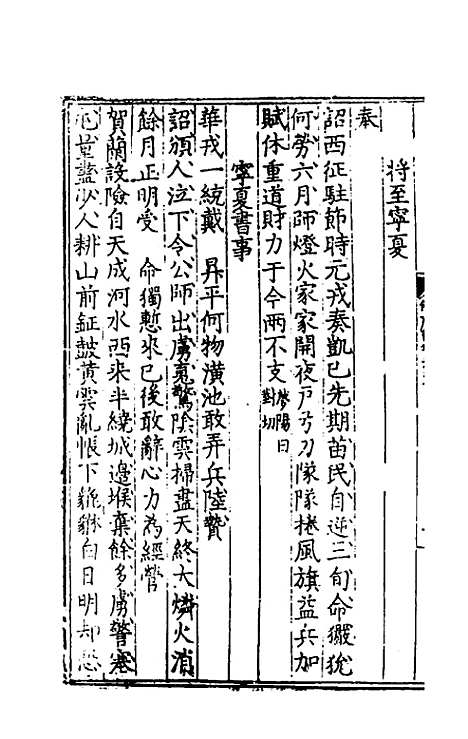 將至寧夏
奉
詔西征駐節時元戎奏凱已先期苗民自逆三旬命玁狁
何勞六月師燈火家家開夜戶弓刀隊隊捲風旗益兵加
賦休重道財力于今兩不支 夢陽曰對切
寧夏書事
華戎一統戴 昇平何物潢池敢弄兵陸贄
詔頒人泣下令公師出虜驚陰雲掃盡天終大燐火消
餘月正明受 命獨慙來已後敢辭心力為經營
賀蘭設險自天成河水西來半繞城邊堠棄餘多虜警塞
屯堇盡少人耕山前鉦鼓黃雲亂帳下貔貅白日明却